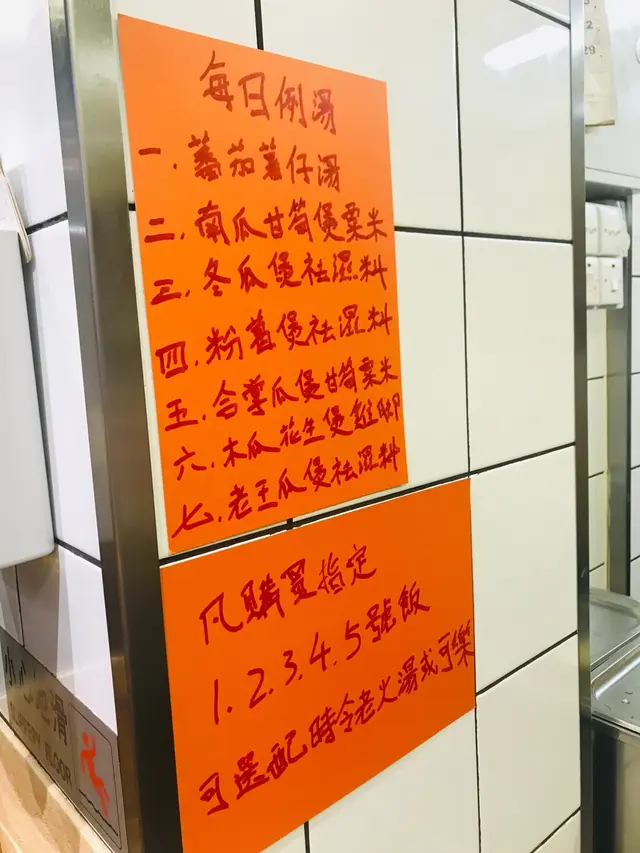 每日例湯
一.蕃茄薯仔湯
二.南瓜甘筍煲粟米
三.冬瓜煲祛濕料
四.粉葛煲祛濕料
五.合掌瓜煲甘筍粟米
六.木瓜花生煲雞腳
七.老王瓜煲祛濕料
凡購買指定
1.2.3.4.5號飯
可選配時令老火湯或可樂
小心地滑
SLIPPERY FLOOR
29